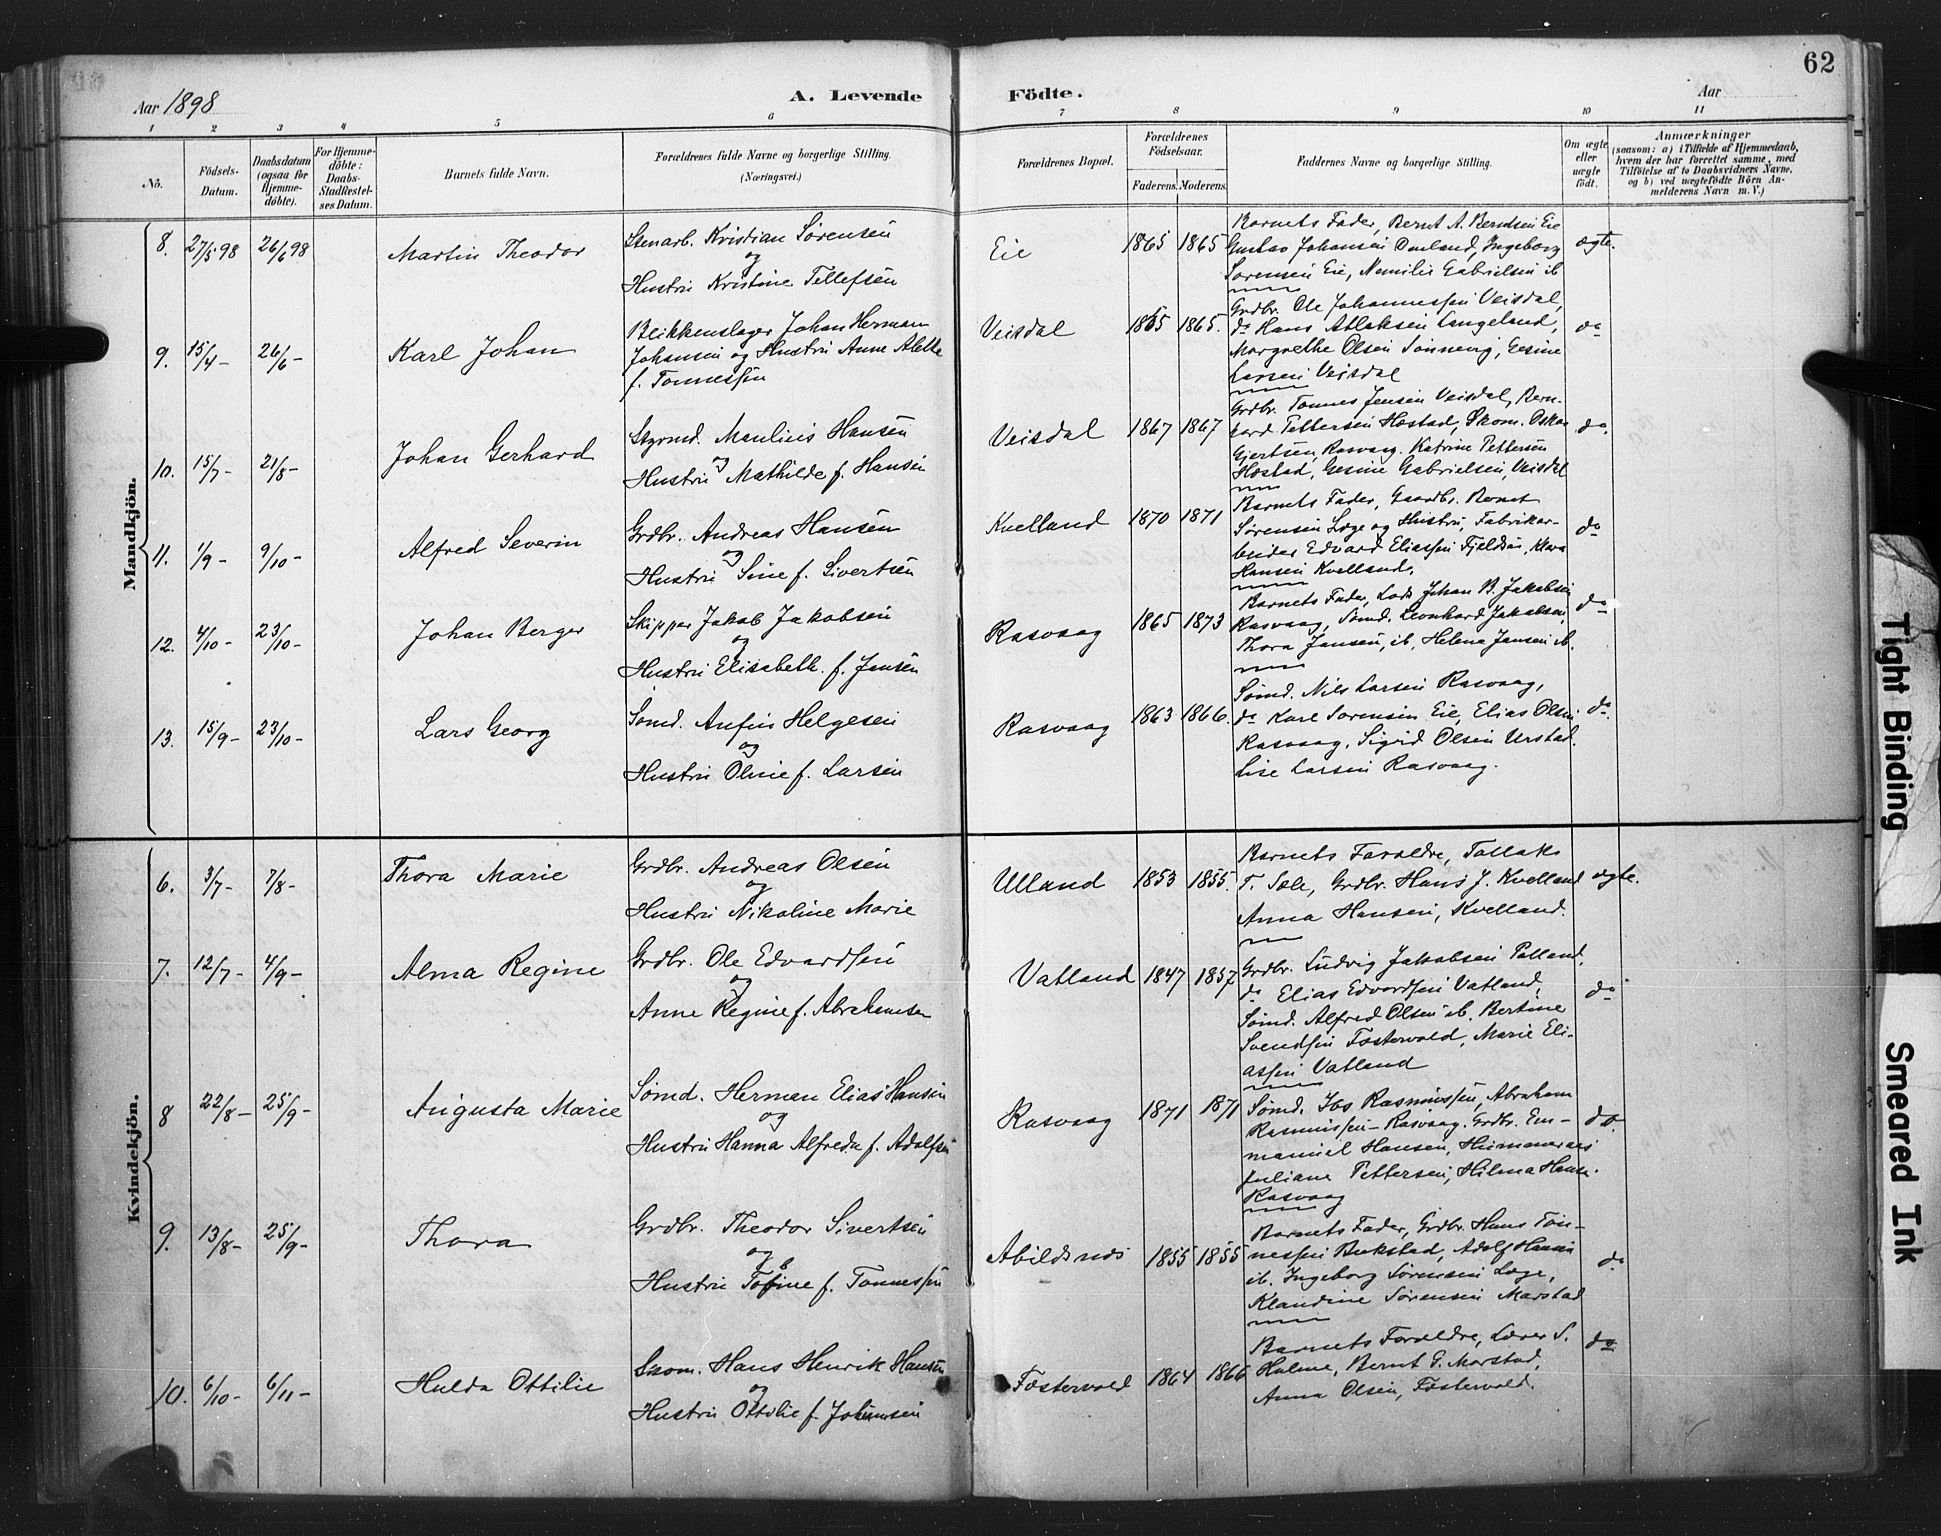 62
Aar 1898
A. Levende Födte.
Aar
1 2 3 4 5 6 7 8 9 10 11
No.
Födsels-Datum.
Daabsdatum (ogsaa for Hjemme-döbte).
For Hjemme-döbte: Daabs-Stadfæstel-ses Datum.
Barnets fulde Navn.
Forældrenes fulde Navne og borgerlige Stilling.
(Næringsvei.)
Forældrenes Bopæl.
Forældrenes Födselsaar.
Faderens. Moderens.
Faddernes Navne og borgerlige Stilling.
Om ægte eller uægte födt.
Anmærkninger
(saasom: a) i Tilfælde af Hjemmedaab,
hvem der har forrettet samme, med
Tilföielse af to Daabsvidners Navne,
og b) ved uægtefödte Börn An-
melderens Navn m. V.)
Mandkjön.
8. 27/5 98 26/6 98 Martin Theodor
Stenarb. Kristian Sørensen
og
Hustru Kristine Tellefsen
Eie 1865 1865
Barnets Fader, Bernt A. Berntsen Eie
Gustav Johansen Omland, Ingeborg
Sørensen Eie, Nemilie Gabrielsen ib
ægte.
9. 15/4 - 26/6 - Karl Johan
Blikkenslager Johan Herman
Johansen og Hustru Anne Alette
f. Tønnessen
Veisdal 1865 1865.
Grdbr. Ole Johannessen Veisdal,
do Hans Atlaksen Langeland,
Margrethe Olsen Sinnevig, Gesine
Larsen Veisdal
do
10. 15/7 - 21/8 - Johan Gerhard
Styrmd. Maulius Hansen
og
Hustru Mathilde f. Hansen
Veisdal 1867 1867
Grdbr. Tønnes Jensen Veisdal, Bern-
hard Pettersen Hæstad, Skom. Oskar
Gjertsen, Rasvaag. Katrine Pettersen
Hæstad, Gesine Gabrielsen, Veisdal
do.
11. 1/9 - 9/10 - Alfred Severin
Grdbr. Andreas Hansen
og
Hustru Sine f. Sivertsen
Kvelland 1870 1871
Barnets Fader, Gaardbr. Bernt
Sørensen Læge og Hustru, Fabrikar-
beider Edvard Eliassen Fjeldsaa, Klara
Hansen Kvelland.
do
12. 4/10 - 23/10 - Johan Berger
Skipper Jakob Jakobsen
og
Hustru Elisabeth f. Jansen
Rasvaag 1865 1873
Barnets Fader, Lods Johan B. Jakobsen
Rasvaag, Sømd. Leonhard Jakobsen,
Thora Jansen, ib. Helene Jansen ib.
do
13. 15/9 - 23/10 - Lars Georg
Sømd. Anfin Helgesen
og
Hustru Oline f. Larsen
Rasvaag 1863 1866.
Sømd. Nils Larsen Rasvaag,
do Karl Sørensen Eie, Elias Olsen
Rasvaag, Sigrid Olsen Urstad.
Lise Larsen Rasvaag.
do.
Kvindekjön.
6. 3/7 - 7/8 - Thora Marie
Grdbr. Andreas Olsen
og
Hustru Nikoline Marie
Ulland 1853 1855.
Barnets Forældre, Tallaks
T. Sæle, Grdbr. Hans J. Kvelland
Anna Hansen, Kvelland.
ægte.
7. 12/7 - 4/9 - Alma Regine
Grdbr. Ole Edvardsen
og
Anne Regine f. Abrahamsen
Vatland 1847 1857
Grdbr. Ludvig Jakobsen Talland,
do Elias Edvardsen Vatland,
Sømd. Alfred Olsen ib. Bertine
Svendsen Fostervold, Marie Eli-
assen Vatland
do
8 22/8 - 25/9 - Augusta Marie
Sømd. Herman Elias Hansen
og
Hustru Hanna Alfreda f. Adolfsen
Rasvaag 1871 1871
Sømd. Jos Rasmussen, Abraham
Rasmussen - Rasvaag. Grdbr. Em-
manuel Hansen,
Juliane Pettersen, Hilma Hansen
Rasvaag
do.
9. 13/8 - 25/9 - Thora
Grdbr. Theodor Sivertsen
og
Hustru Tobine f. Tønnessen
Abildsnes 1855 1855
Barnets Fader, Grdbr. Hans Tøn-
nessen Bukstad, Adolf Hansen
ib. Ingeborg Sørensen Læge,
Klaudine Sørensen Marstad
do
10. 6/10 - 6/11 - Hulda Ottilie
Skom. Hans Henrik Hansen
og
Hustru Ottilie f. Johannesen
Fostervold 1864 1866
Barnets Forældre, Lærer S.
Holme, Bernt G. Marstad,
Anna Olsen, Fostervold.
do
Tight Binding
Smeared Ink